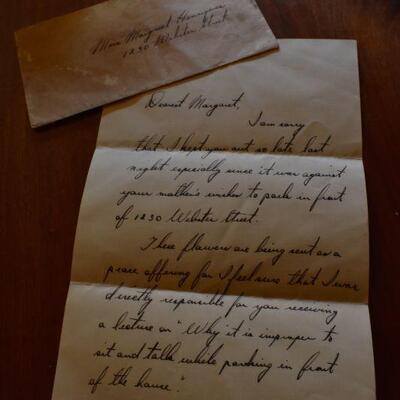 Miss Margaret
1230 Webster Street
Dearest Margaret,
I am sorry
that I kept you out so late last
night especially since it was against
your mother's wishes to park in front
of 1230 Webster Street.
These flowers are being sent as a
peace offering for I feel sure that I was
directly responsible for you receiving
a lecture on "Why it is improper to
sit and talk while parking in front
of the house".